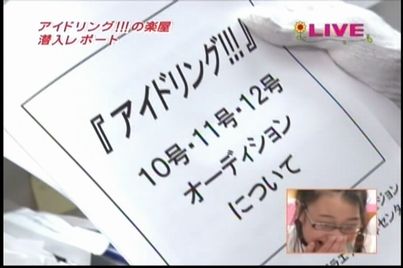 アイドリング!!!の楽屋
潜入レポート
LIVE
『アイドリング!!!』
10号・11号・12号
オーディション
について